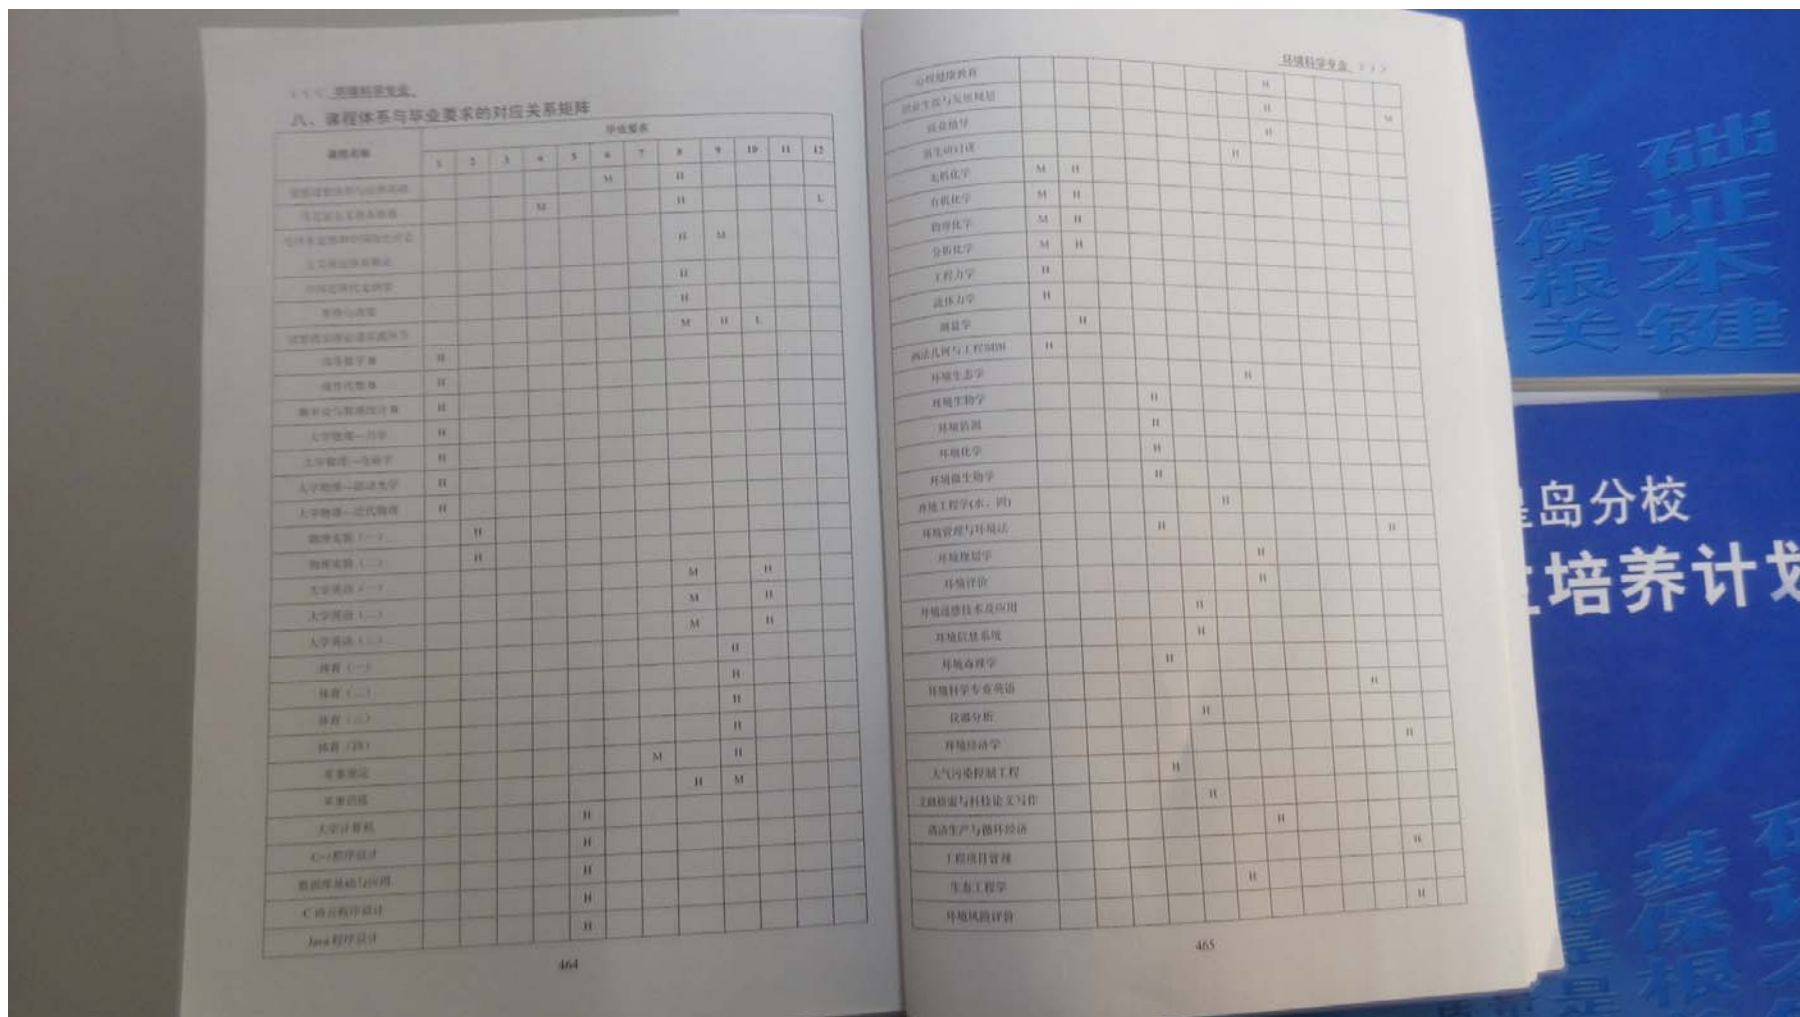 环境科学专业
八、课程体系与毕业要求的对应关系矩阵
课程名称 毕业要求
1 2 3 4 5 6 7 8 9 10 11 12
M H
M H L
H M
H
H
M H L
高等数学 H
线性代数 H
H
大学物理—力学 H
大学物理—电磁学 H
H
大学物理—近代物理 H
物理实验（一） H
物理实验（二） H
大学英语（一） M H
大学英语（二） M H
大学英语（三） M H
体育（一） H
体育（二） H
体育（三） H
体育（四） H
军事理论 M H
军事训练 H M
大学计算机 H
C++程序设计 H
数据库基础与应用 H
C语言程序设计 H
Java程序设计 H
464
环境科学专业
心理健康教育 H
H M
就业指导 H
新生研讨课 H
无机化学 M H
有机化学 M H
物理化学 M H
分析化学 M H
工程力学 H
流体力学 H
测量学 H
画法几何与工程制图 H
环境生态学 H
环境生物学 H
环境监测 H
环境化学 H
环境微生物学 H
环境工程学(水、固) H
环境管理与环境法 H H
环境规划学 H
环境评价 H
环境遥感技术及应用 H
环境信息系统 H
环境毒理学 H
环境科学专业英语 H
仪器分析 H
环境经济学 H
大气污染控制工程 H
文献检索与科技论文写作 H
清洁生产与循环经济 H
工程项目管理 H
生态工程学 H
环境风险评价 H
465
基础
保证
根本
关键
岛分校
培养计划
基
保
根
是